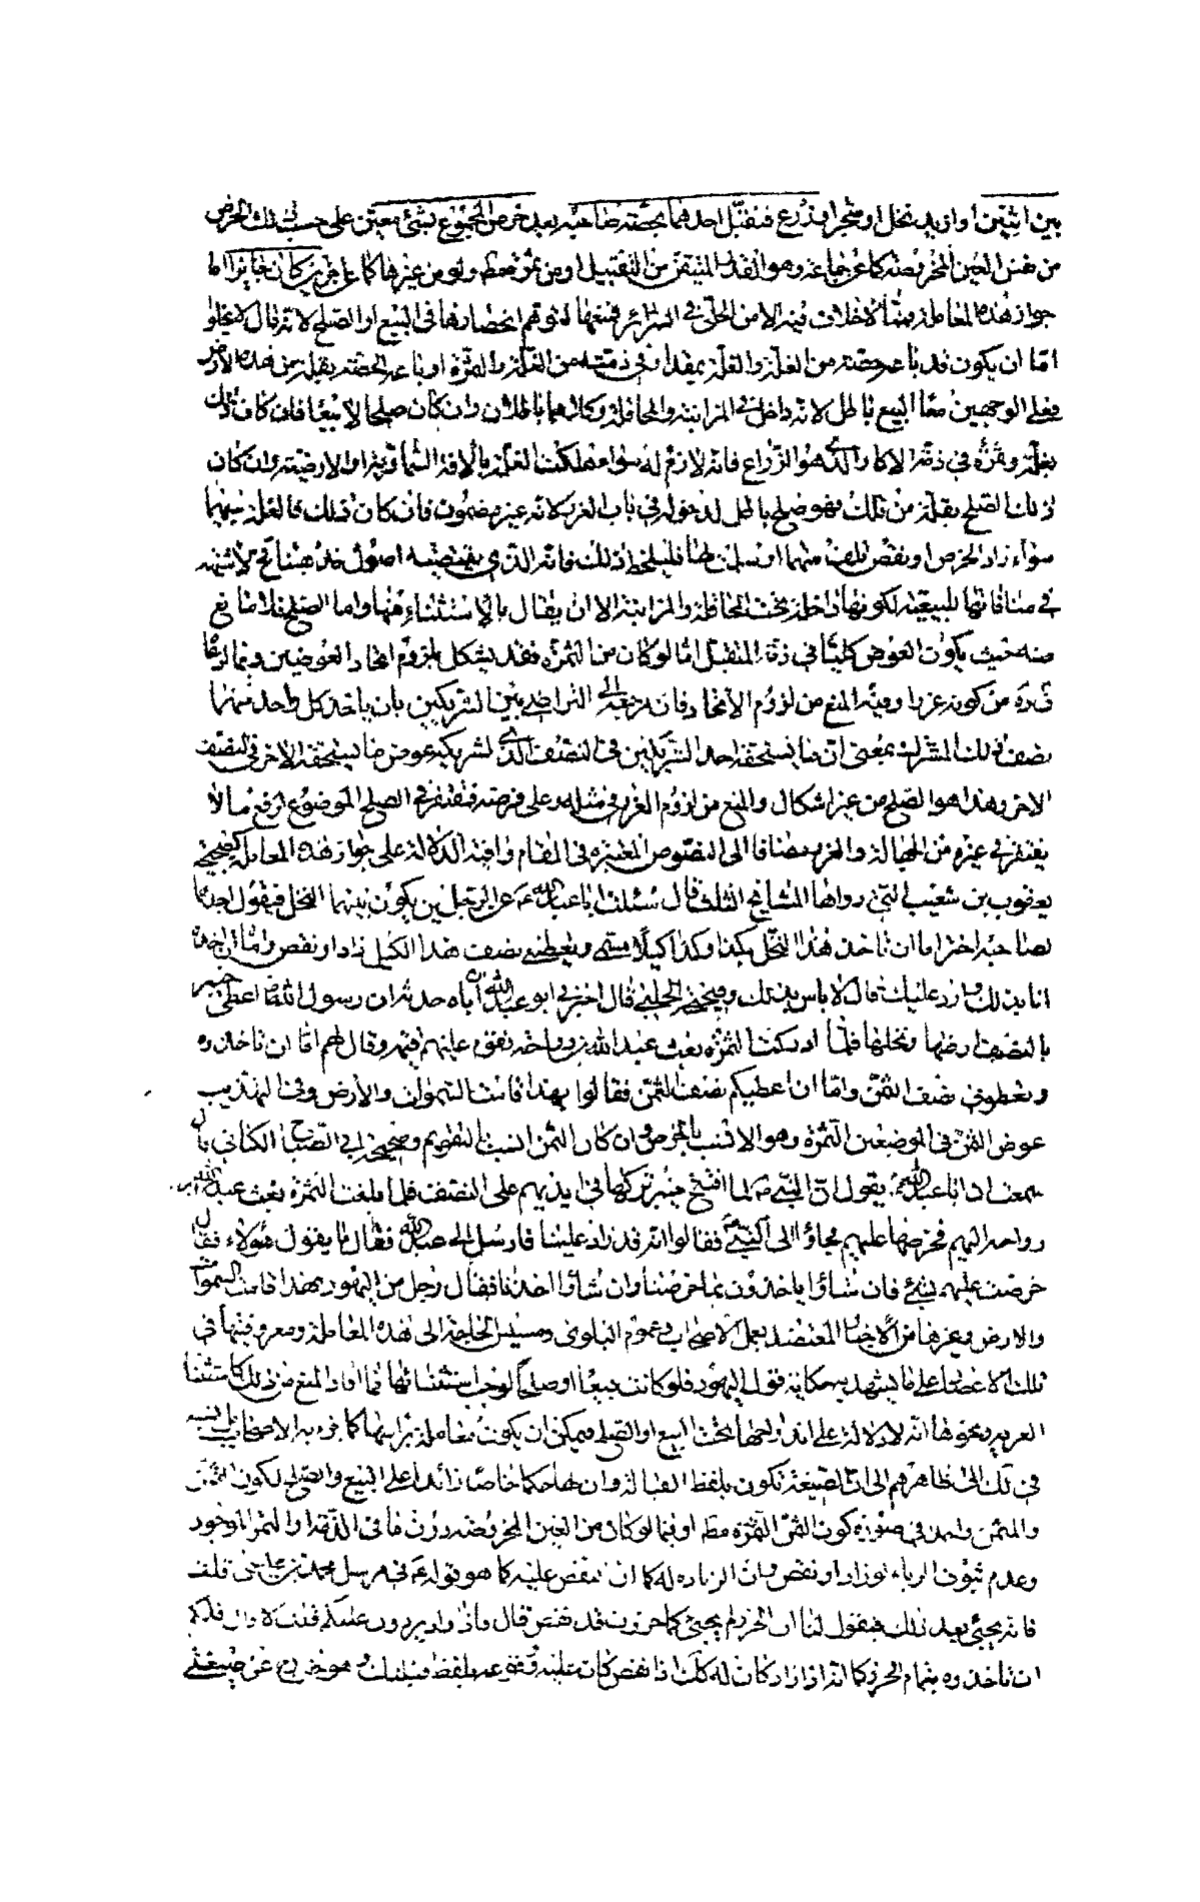 بين اثنين او ازيد نخل او شجر او زرع فتقبّل احدهما بحصّة صاحبه بعد خرص المجموع بشئ معيّن على حسب ذلك الخرص
من جنس العين المخروصة كما عن جماعة وهو القدر المتيقن من التقبيل او من ثمن مطلقا ولو من غيرها كما عن كان جائزا اما
جواز هذه المعاملة ممّا لا خلاف فيه الا من الحلّي في السرائر فمنعها لتوهم انحصارها في البيع او الصلح لانه قال لا يخلو
امّا ان يكون قد باعه حصته من الغلّة والثمرة بمقدار في ذمته من الغلّة والثمرة او باعه الحصة بغلّة من هذه الارض
فعلى الوجهين معًا البيع باطل لانه داخل في المزابنة والمحاقلة وكلاهما باطلان وان كان صلحا لا بيعًا فان كان ذلك
بغلّة وثمرة في ذمّة الاكار الذي هو الزرّاع فانه لازم له سواء هلكت الغلّة بالآفة السّماوية او الارضية وان كان
ذلك الصلح بغلّة من تلك فهو صلح باطل لدخوله في باب الغرر لانه غير مضمون فان كان ذلك فالغلّة بينهما
سواء زاد الخرص او نقص تلفت منهما او سلمت لهما فليلحظ ذلك فانه الذي يقتضيه اصول مذهبنا نعم لا شبهة
في منافاتها للبيعية لكونها داخلة تحت المحاقلة والمزابنة الا ان يقال بالاستثناء منها واما الصلح فلا مانع
منه حيث يكون العوض كليّا في ذمّة المتقبل امّا لو كان من الثمرة فقد يشكل بلزوم اتحاد العوضين وبما
من كونه غررا وفيه المنع من لزوم الاتحاد فان مرجعه الى التراضي بين الشريكين بان ياخذ كل واحد منهما
نصف ذلك المشترك بمعنى ان ما يستحقه احد الشريكين في النصف الذي لشريكه عوض ما يستحقه الاخر في النصف
الاخر وهذا هو الصلح من غير اشكال والمنع من لزوم الغرر في مثله وعلى فرضه فيغتفر في الصلح الموضوع لرفع ما لا
يغتفر في غيره من الجهالة والغرر مضافا الى النصوص المعتبرة في المقام وافية الدلالة على جواز هذه المعاملة كصحيحة
يعقوب بن شعيب التي رواها المشايخ الثلث قال سئلت ابا عبد الله ع عن الرجلين يكون بينهما النخل فيقول احدهما
لصاحبه اختر اما ان تاخذ هذا النخل بكذا وكذا كيلًا مسمى وتعطيني نصف هذا الكيل زاد او نقص واما ان اخذه
انا بذلك وارد عليك قال لا باس بذلك وصحيحة الحلبي قال اخبرني ابو عبد الله ان اباه حدثه ان رسول الله ص اعطى خيبر
بالنصف ارضها ونخلها فلمّا ادركت الثمرة بعث عبد الله بن رواحة فقوم عليهم قيمة وقال لهم امّا ان تاخذوه
وتعطوني نصف الثمن وامّا ان اعطيكم نصف الثمن فقالوا بهذا قامت السّموات والارض وفي التهذيب
عوض الثمن في الموضعين الثمرة وهو الانسب بالخرص وان كان الثمن انسب بالتقويم وصحيحة ابي الصباح الكناني قال
سمعت ابا عبد الله ع يقول ان النبي ص لما افتتح خيبر تركها في ايديهم على النصف فلما بلغت الثمرة بعث عبد الله بن
رواحة اليهم فخرصها عليهم فجاؤا الى النبي ص فقالوا انه قد زاد علينا فارسل الى عبد الله فقال ما يقول هؤلاء فقال
خرصت عليهم بشئ فان شاؤا ياخذون بما خرصنا وان شاؤا اخذنا فقال رجل من اليهود بهذا قامت السموات
والارض وغيرها من الاخبار المعتضد بعمل الاصحاب وعموم البلوى ومسيس الحاجة الى هذه المعاملة ومعروفيتها في
تلك الاعصار على ما يشهد به حكاية قول اليهود فلو كانت بيعًا او صلحًا لوجب استثنائها مما افاد المنع من ذلك كاستثناء
العرية ونحوها انه لا دلالة على اندراجها تحت البيع او الصلح فيمكن ان يكون معاملة براسها كما جزم به الاصحاب بل نسبه
في تلك الى ظاهرهم الى ان الصيغة تكون بلفظ القبالة وان لها حكما خاصّا زائدا على البيع والصلح لكون الثمن
والمثمن واحد في صورة كون الثمن الثمرة مطلقا او فيما لو كان من العين المخروصة دون ما في الذّمة او الثمر الموجود
وعدم ثبوت الرباء لو زاد او نقص وان الزيادة له كما ان النقص عليه كما هو قوله ع في مرسل محمد بن عيسى قلت
فانه يجيئ بعد ذلك فيقول لنا ان الحزر لم يجئ كما حزرت قد نقص قال واذا زاد يرد عليكم قلت لا قال فلكم
ان تاخذوه بتمام الحزر كما انه اذا زاد كان له كلك اذا نقص كان عليه وقوعه بلفظ قبلتك وهو صريح عن صيغتي